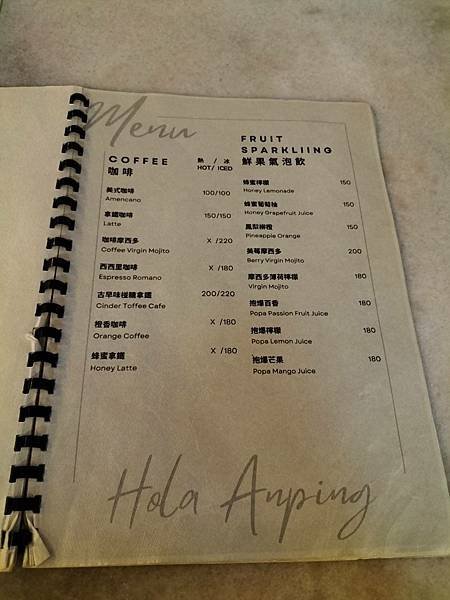 Menu
COFFEE 熱 / 冰
咖啡 HOT / ICED
美式咖啡 100/100
Amencano
拿鐵咖啡 150/150
Latte
咖啡摩西多 X /220
Coffee Virgin Mojito
西西里咖啡 X /180
Espresso Romano
古早味椪糖拿鐵 200/220
Cinder Toffee Cafe
橙香咖啡 X /180
Orange Coffee
蜂蜜拿鐵 X /180
Honey Latte
FRUIT
SPARKLIING
鮮果氣泡飲
蜂蜜檸檬 150
Honey Lemonade
蜂蜜葡萄柚 150
Honey Grapefruit Juice
鳳梨柳橙 150
Pineapple Orange
美莓摩西多 200
Berry Virgin Mojito
摩西多薄荷檸檬 180
Virgin Mojito
抱爆百香 180
Popa Passion Fruit Juice
抱爆檸檬 180
Popa Lemon Juice
抱爆芒果 180
Popa Mango Juice
Hola Anping